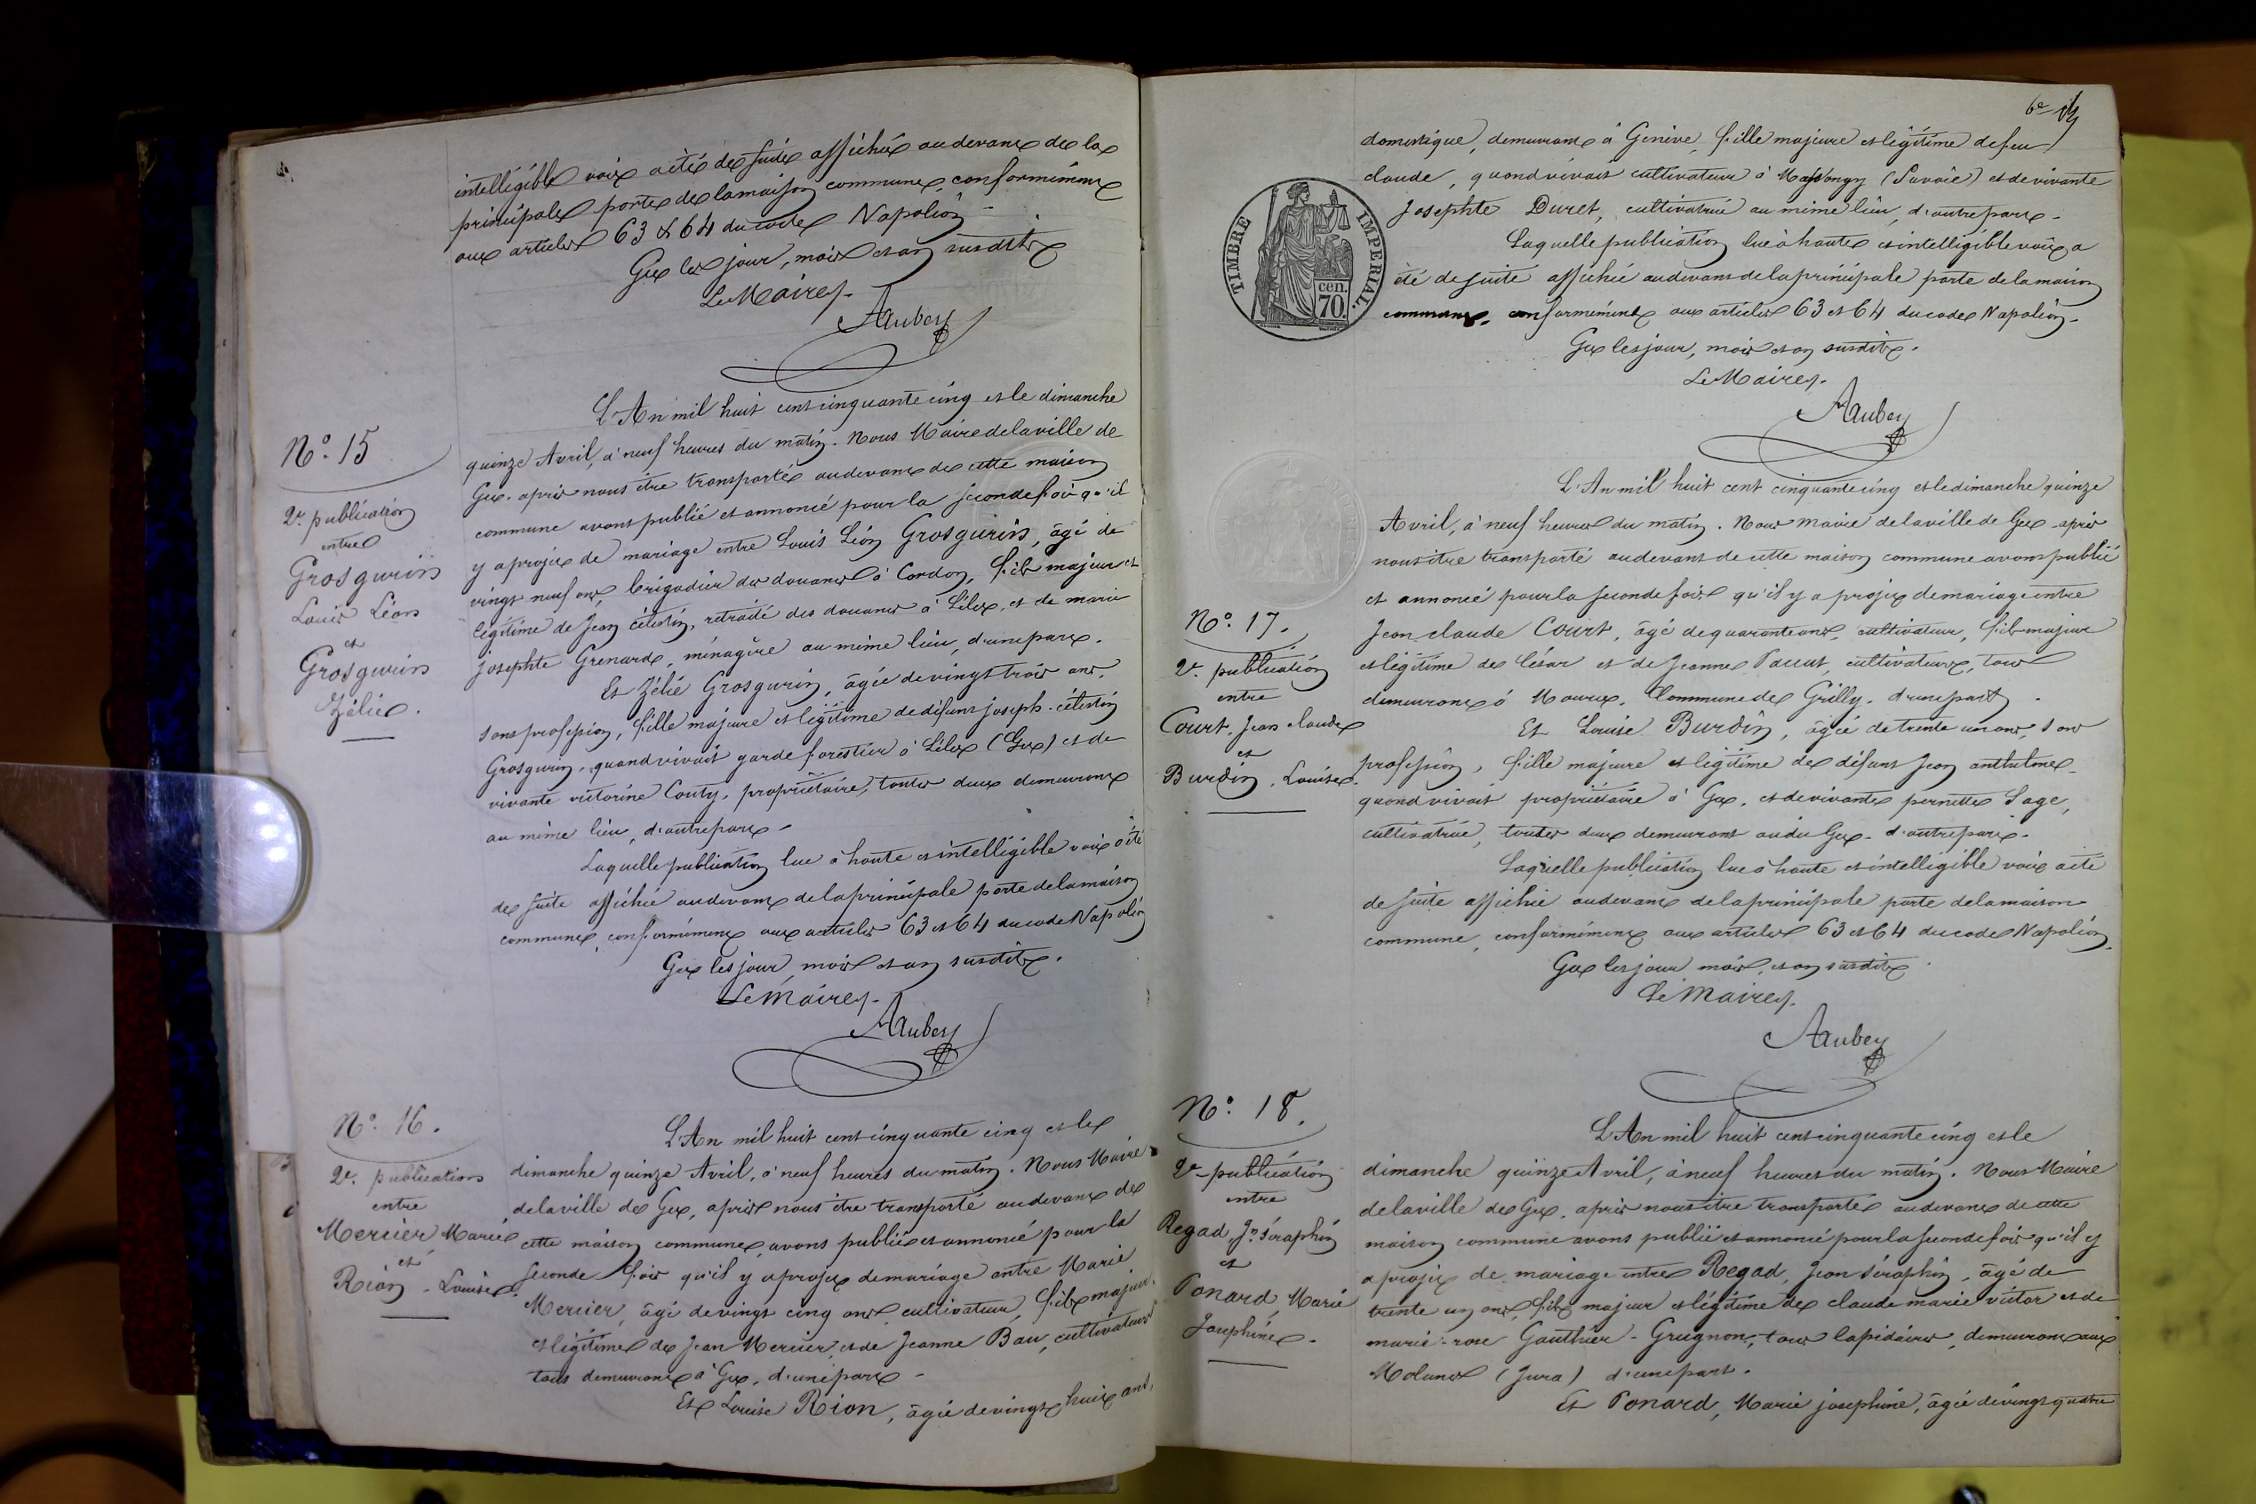 intelligible voix a été de suite affichée au devant de la
principale porte de la maison commune, conformément
aux articles 63 & 64 du code Napoléon
Gex les jour, mois et an susdits
Le Maire,
Aubery
N° 15
2e publication
entre
Grosgurin
Louis Léon
et
Grosgurin
Zélie.
L'An mil huit cent cinquante cinq et le dimanche
quinze Avril, à neuf heures du matin. Nous Maire de la ville de
Gex, après nous être transporté au devant de cette maison
commune avons publié et annoncé pour la seconde fois qu'il
y a projet de mariage entre Louis Léon Grosgurin, âgé de
vingt neuf ans, brigadier des douanes à Cordon, fils majeur et
légitime de Jean Célestin, retraité des douanes à Lélex, et de marie
josephte Grenard, ménagère au même lieu, d'une part.
Et Zélie Grosgurin, âgée de vingt trois ans,
sans profession, fille majeure et légitime de défunt joseph-célestin
Grosgurin, quand vivait garde forestier à Lélex (Gex) et de
vivante victorine Couty, propriétaire, toutes deux demeurant
au même lieu, d'autre part.
Laquelle publication lue à haute et intelligible voix a été
de suite affichée au devant de la principale porte de la maison
commune, conformément aux articles 63 et 64 du code Napoléon
Gex les jour, mois et an susdits.
Le Maire,
Aubery
N° 16.
2e publication
entre
Mercier Marie
et
Rion. Louise.
L'An mil huit cent cinquante cinq et le
dimanche quinze Avril, à neuf heures du matin. Nous Maire
de la ville de Gex, après nous être transporté au devant de
cette maison commune, avons publié et annoncé pour la
seconde fois qu'il y a projet de mariage entre Marie
Mercier, âgé de vingt cinq ans, cultivateur, fils majeur
et légitime de Jean Mercier, et de Jeanne Bau, cultivateurs
tous demeurant à Gex, d'une part.
Et Louise Rion, âgée de vingt huit ans,
6e
domestique, demeurant à Genève, fille majeure et légitime de feu
claude, quand vivait cultivateur à Massongy (Savoie) et de vivante
Josephte Duret, cultivatrice au même lieu, d'autre part.
Laquelle publication lue à haute et intelligible voix a
été de suite affichée au devant de la principale porte de la maison
commune, conformément aux articles 63 et 64 du code Napoléon.
Gex les jour, mois et an susdits.
Le Maire,
Aubery
TIMBRE IMPERIAL.
cen.
70.
N° 17.
2e publication
entre
Court. Jean claude
et
Burdin. Louise.
L'An mil huit cent cinquante cinq et le dimanche quinze
Avril, à neuf heures du matin. Nous maire de la ville de Gex après
nous être transporté au devant de cette maison commune avons publié
et annoncé pour la seconde fois qu'il y a projet de mariage entre
Jean claude Court, âgé de quarante ans, cultivateur, fils majeur
et légitime de César et de Jeanne, cultivateurs, tous
demeurant à Mourex, Commune de Grilly, d'une part.
Et Louise Burdin, âgée de trente un ans, sans
profession, fille majeure et légitime de défunt Jean anthelme
quand vivait propriétaire à Gex, et de vivante pernette Sage,
cultivatrice, toutes deux demeurant audit Gex, d'autre part.
Laquelle publication lue à haute et intelligible voix a été
de suite affichée au devant de la principale porte de la maison
commune, conformément aux articles 63 et 64 du code Napoléon.
Gex les jour, mois, et an susdits
Le Maire,
Aubery
N° 18.
2e publication
entre
Regad, Jn Séraphin
et
Ponard, Marie
Josephine.
L'An mil huit cent cinquante cinq et le
dimanche quinze Avril, à neuf heures du matin. Nous Maire
de la ville de Gex, après nous être transporté au devant de cette
maison commune avons publié et annoncé pour la seconde fois qu'il y
a projet de mariage entre Regad, Jean Séraphin, âgé de
trente un ans, fils majeur et légitime de claude marie victor et de
marie-rose Gauthier-Grugnon, tous lapidaires, demeurant aux
Molunes (Jura) d'une part.
Et Ponard, Marie josephine, âgée de vingt quatre